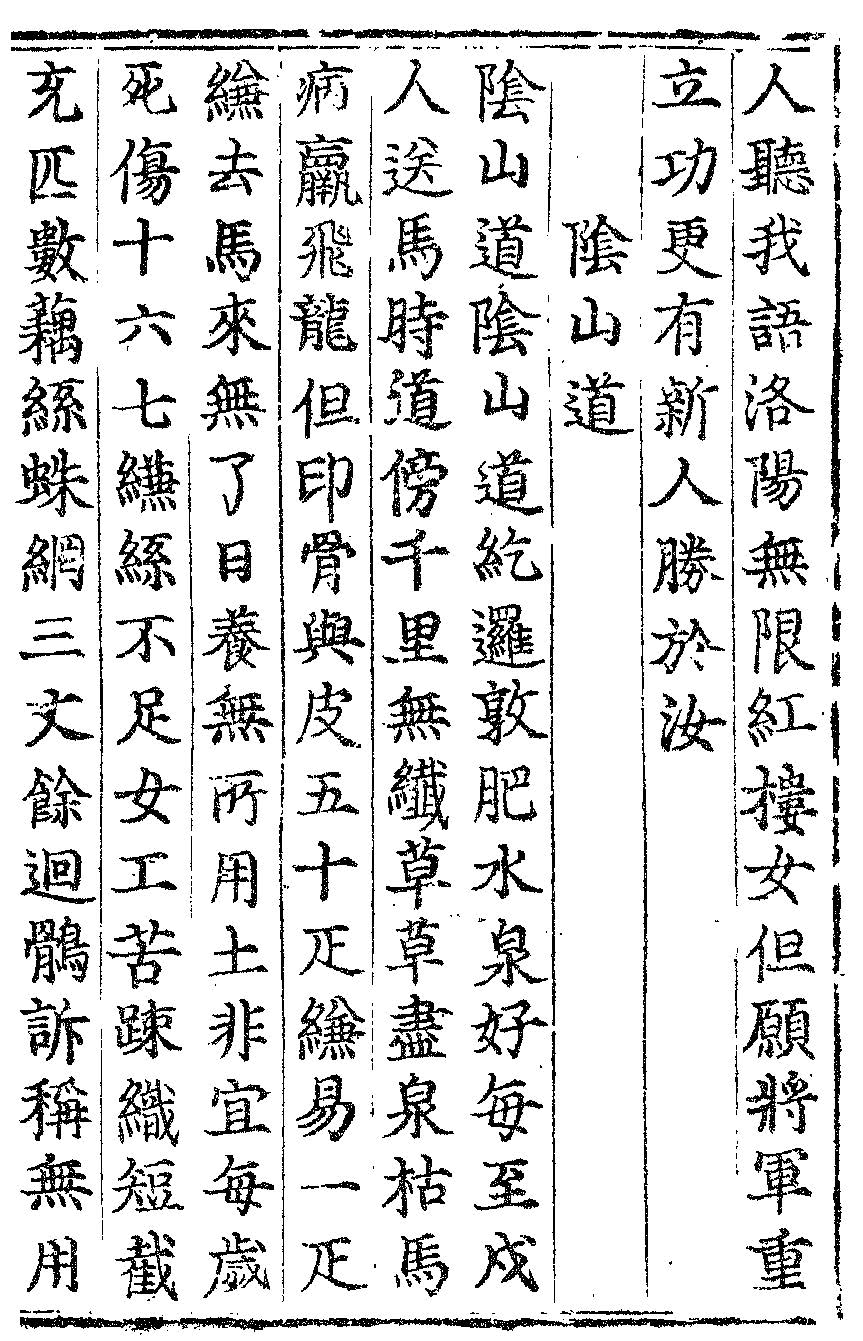 人聽我語洛陽無限紅樓女但願將軍重
立功更有新人勝於汝
陰山道
陰山道陰山道紇邏敦肥水泉好每至戍
人送馬時道傍千里無纖草草盡泉枯馬
病羸飛龍但印骨與皮五十疋縑易一疋
縑去馬來無了日養無所用土非宜每歳
死傷十六七縑絲不足女工苦踈織短截
充匹數藕絲蛛網三丈餘迴鶻訴稱無用